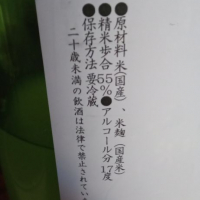 ●原材料 米(国産)、米麹(国産米)
●精米歩合 55%●アルコール分 17度
●保存方法 要冷蔵
二十歳未満の飲酒は法律で禁止されてい